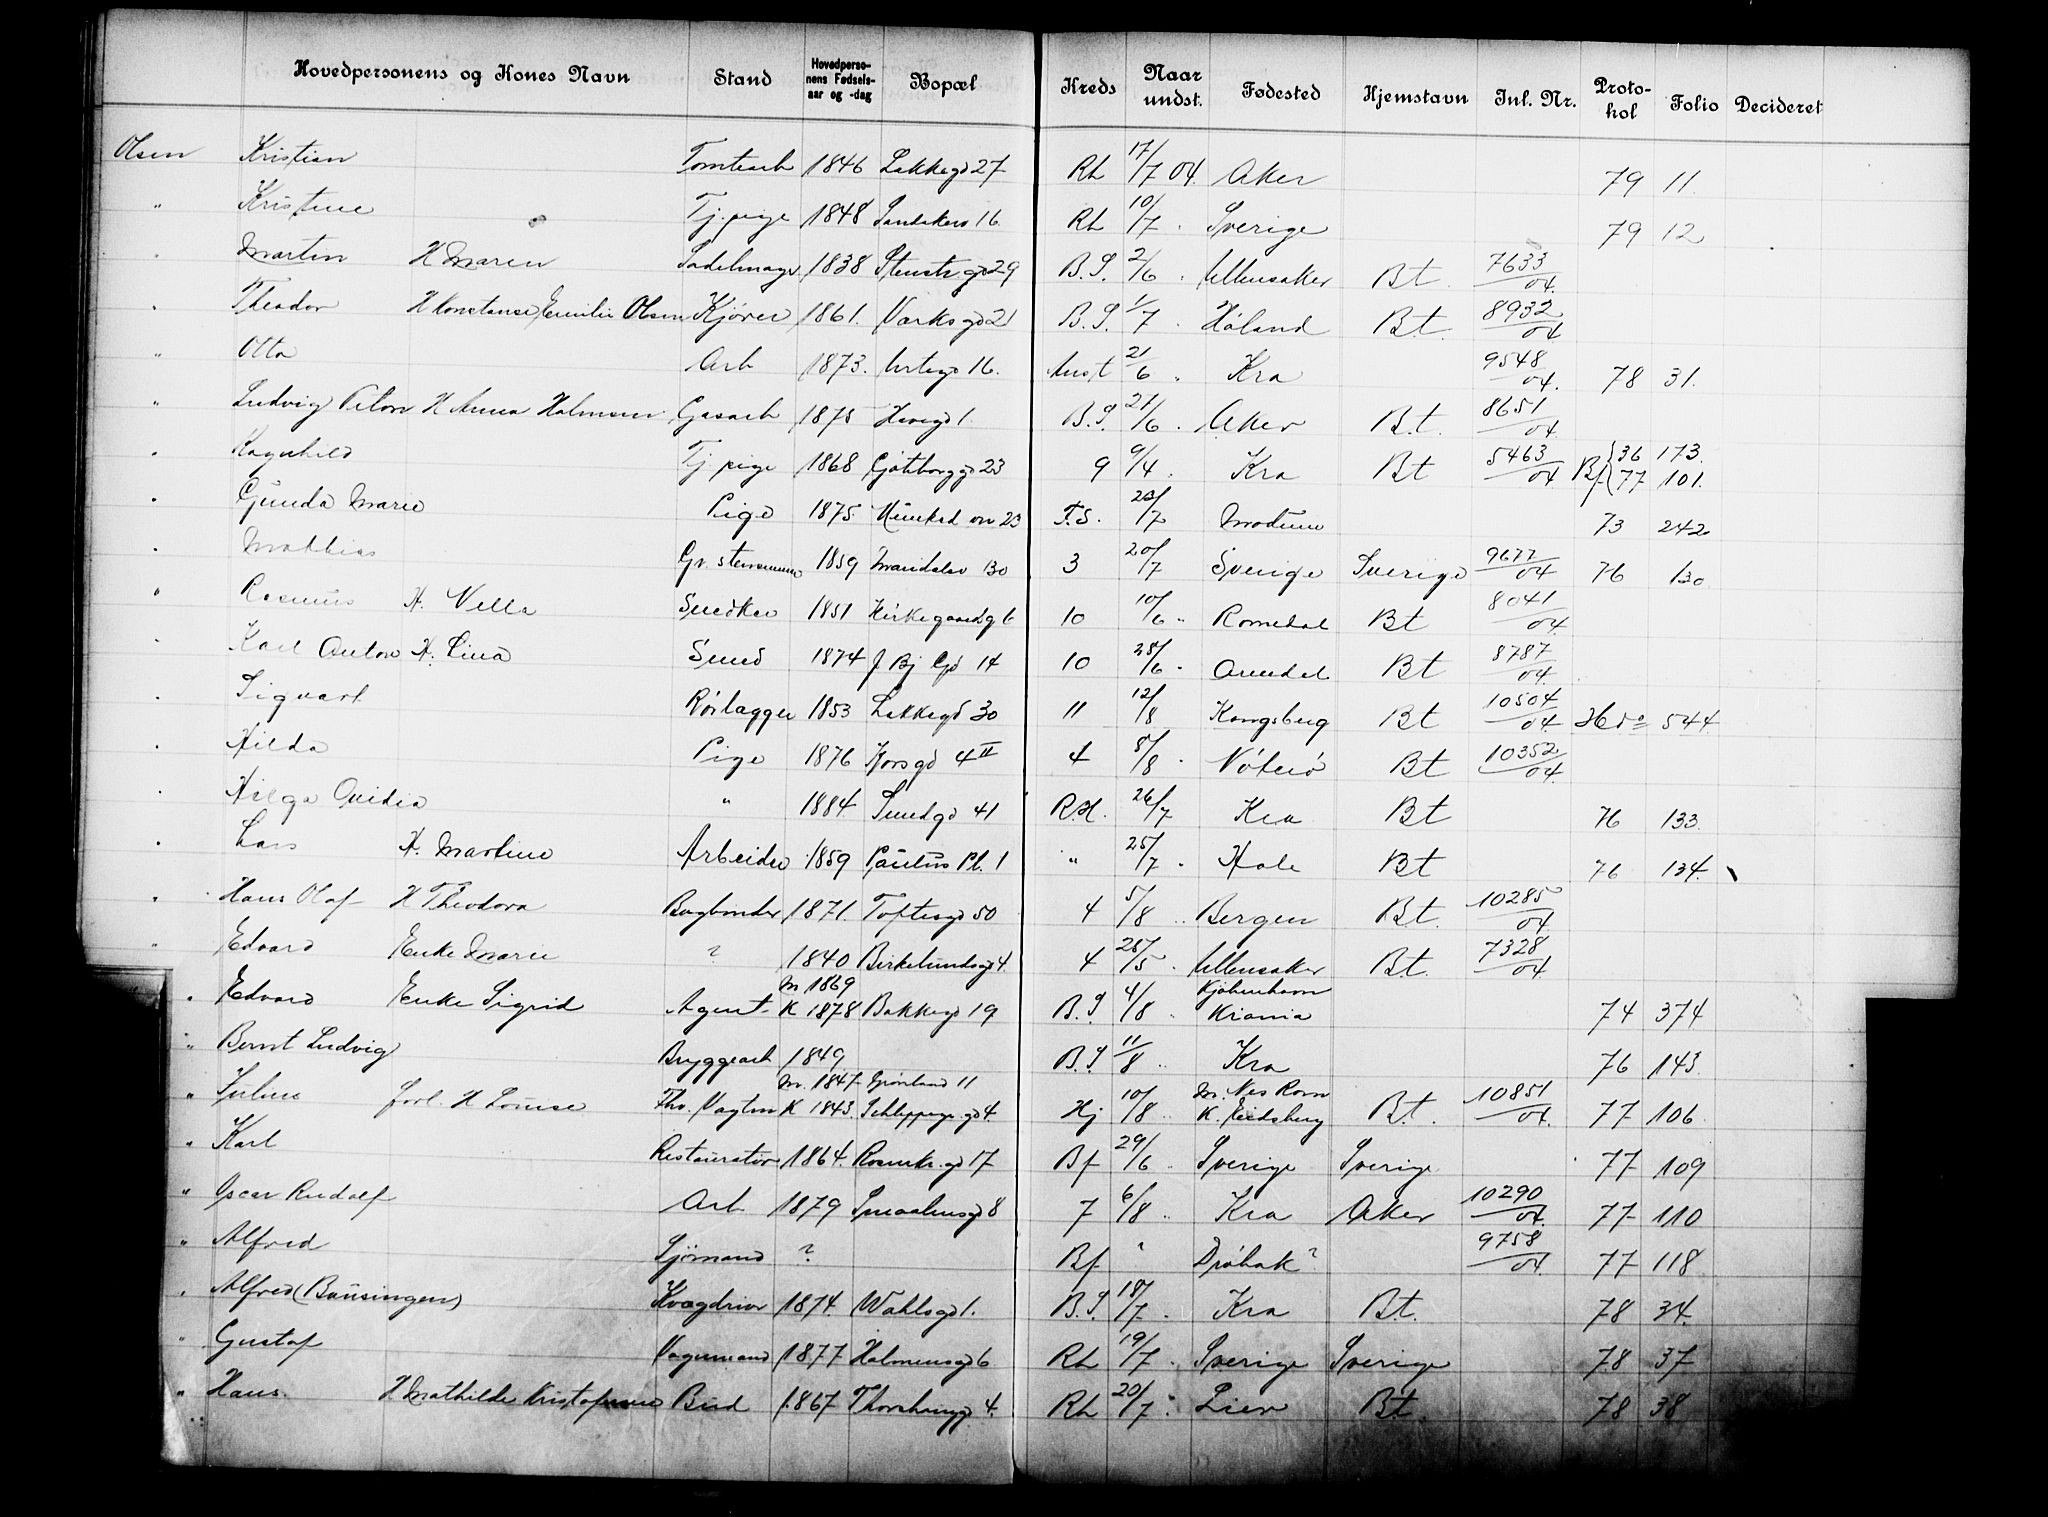 Hovedpersonens og Kones Navn Stand Hovedpersonens Fødselsaar og -dag Bopæl Kreds Naar undst. Fødested Hjemstavn Inl. Nr. Protokol Folio Decideret
Olsen Kristian Tomtearb 1846 Lakkegd 27 Rh 17/7 04. Aker 79 11.
" Kristine Tj. pige 1848 16. Rh 10/7 . Sverige 79 12
" Martin H Maren Sadelmager 1838 Stenstr. gd 29 B.S. 2/6 . Ullensaker Bt. 7633/04.
" Theodor H Konstanse Emilie Olsen Kjører 1861. Værksgd 21 B.S. 1/7 . Høland Bt. 8932/04
" Otto Arb 1873. Urtegd 16. Aust 21/6 . Kra 9548/04. 78 31.
" Ludvig Anton H Anna Halmsen Gasarb 1875 1. B.S. 21/6 . Aker Bt. 8651/04.
" Ragnhild Tj. pige 1868 Gøtiborggd 23 9 9/4 . Kra Bt 5463/04 Bf (36 173. 77 101.
" Gunda Marie Pige 1875 23 F.S. 23/7 Modum 73 242
" Mathias Gr. 1859 130 3 20/7 Sverige Sverige 9677/04 76 130
" Rasmus H. Vella Snedker 1851 Kirkegaardsg 6 10 10/6 " Romedal Bt 8041/04.
" Karl Anton H. Lina Smed 1874 J Bj Gd 14 10 28/6 . Arendal Bt 8787/04.
" Sigvart Rørlægger 1853 Lakkegd 30 11 12/8 Kongsberg Bt 10504/04. 544.
" Hilda Pige 1876 Korsgd 4 II 4 8/8 . Nøterø Bt 10352/04.
" Helga Ovidia " 1884. Smedgd 41 R.H. 26/7 Kra Bt 76 133.
" Lars H. Martine Arbeider 1859 Paulus Pl. 1 " 25/7 . Hole Bt 76 134.
" Hans Olaf H Theodora Bogbinder 1871. Toftesgd 50 4 5/8 " Bergen Bt. 10285/04
" Edvard Enke Marie ? 1840 Birkelundsgd 4. 4 28/5 . Ullensaker Bt. 7328/04
" Edvard Enke Sigrid Agent M 1869 K 1878 Bakkegd 19 B.S 4/8 . Kjøbenhavn Kr.ania 74 374
" Bernt Ludvig Bryggearb 1849 B.S 11/8 " Kra 76 143.
" Juline forl. H Louise M. 1847 K 1843. Grønland 11 Schleppegr. gd 4. Hj 10/8 . M. Nes Rom K. Eidsberg Bt. 10851/04. 77 106
" Karl Restauratør 1864. Rosenkr. gd 17 Bf 29/6 . Sverige Sverige 77 109
" Oscar Rudolf Arb 1879 Smaalensgd 8 7 6/8 " Kra Aker 10290/04. 77 110
" Alfred Sjømand ? Bf " Drøbak ? 9758/04. 77 118
" Alfred (Bausingen) Kvægdriver 1874. Wahlsgd 1. B.S 18/7 . Kra Bt. 78 34.
" Gustaf Vognmand 1877 Holmensgd 6 Rh 19/7 . Sverige Sverige 78 37
" Hans. H Mathilde Kristofersen Bud 1867 4. Rh 20/7 . Lier Bt. 78 38